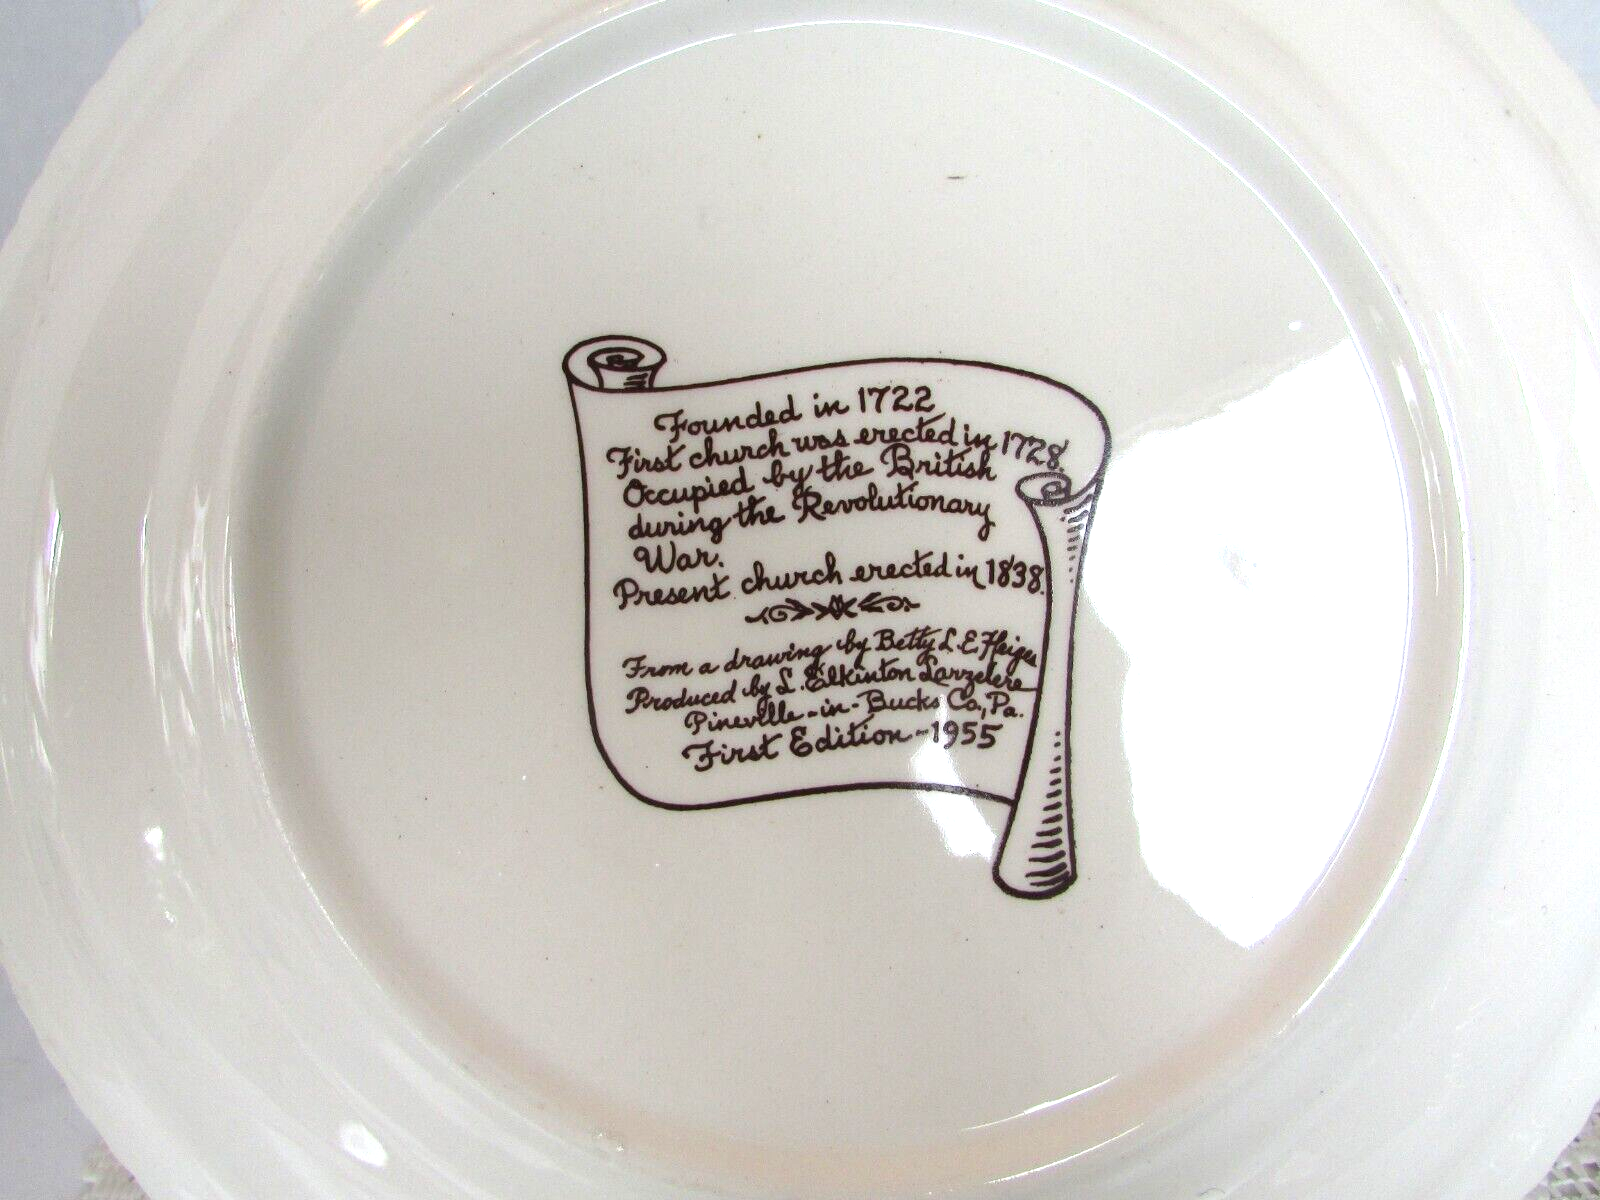 Founded in 1722
First church was erected in 1728.
Occupied by the British
during the Revolutionary
War.
Present church erected in 1838.
From a drawing by Betty L. E. Heiges
Produced by L. Elkinton Larzelere
Pineville-in-Bucks Co., Pa.
First Edition - 1955